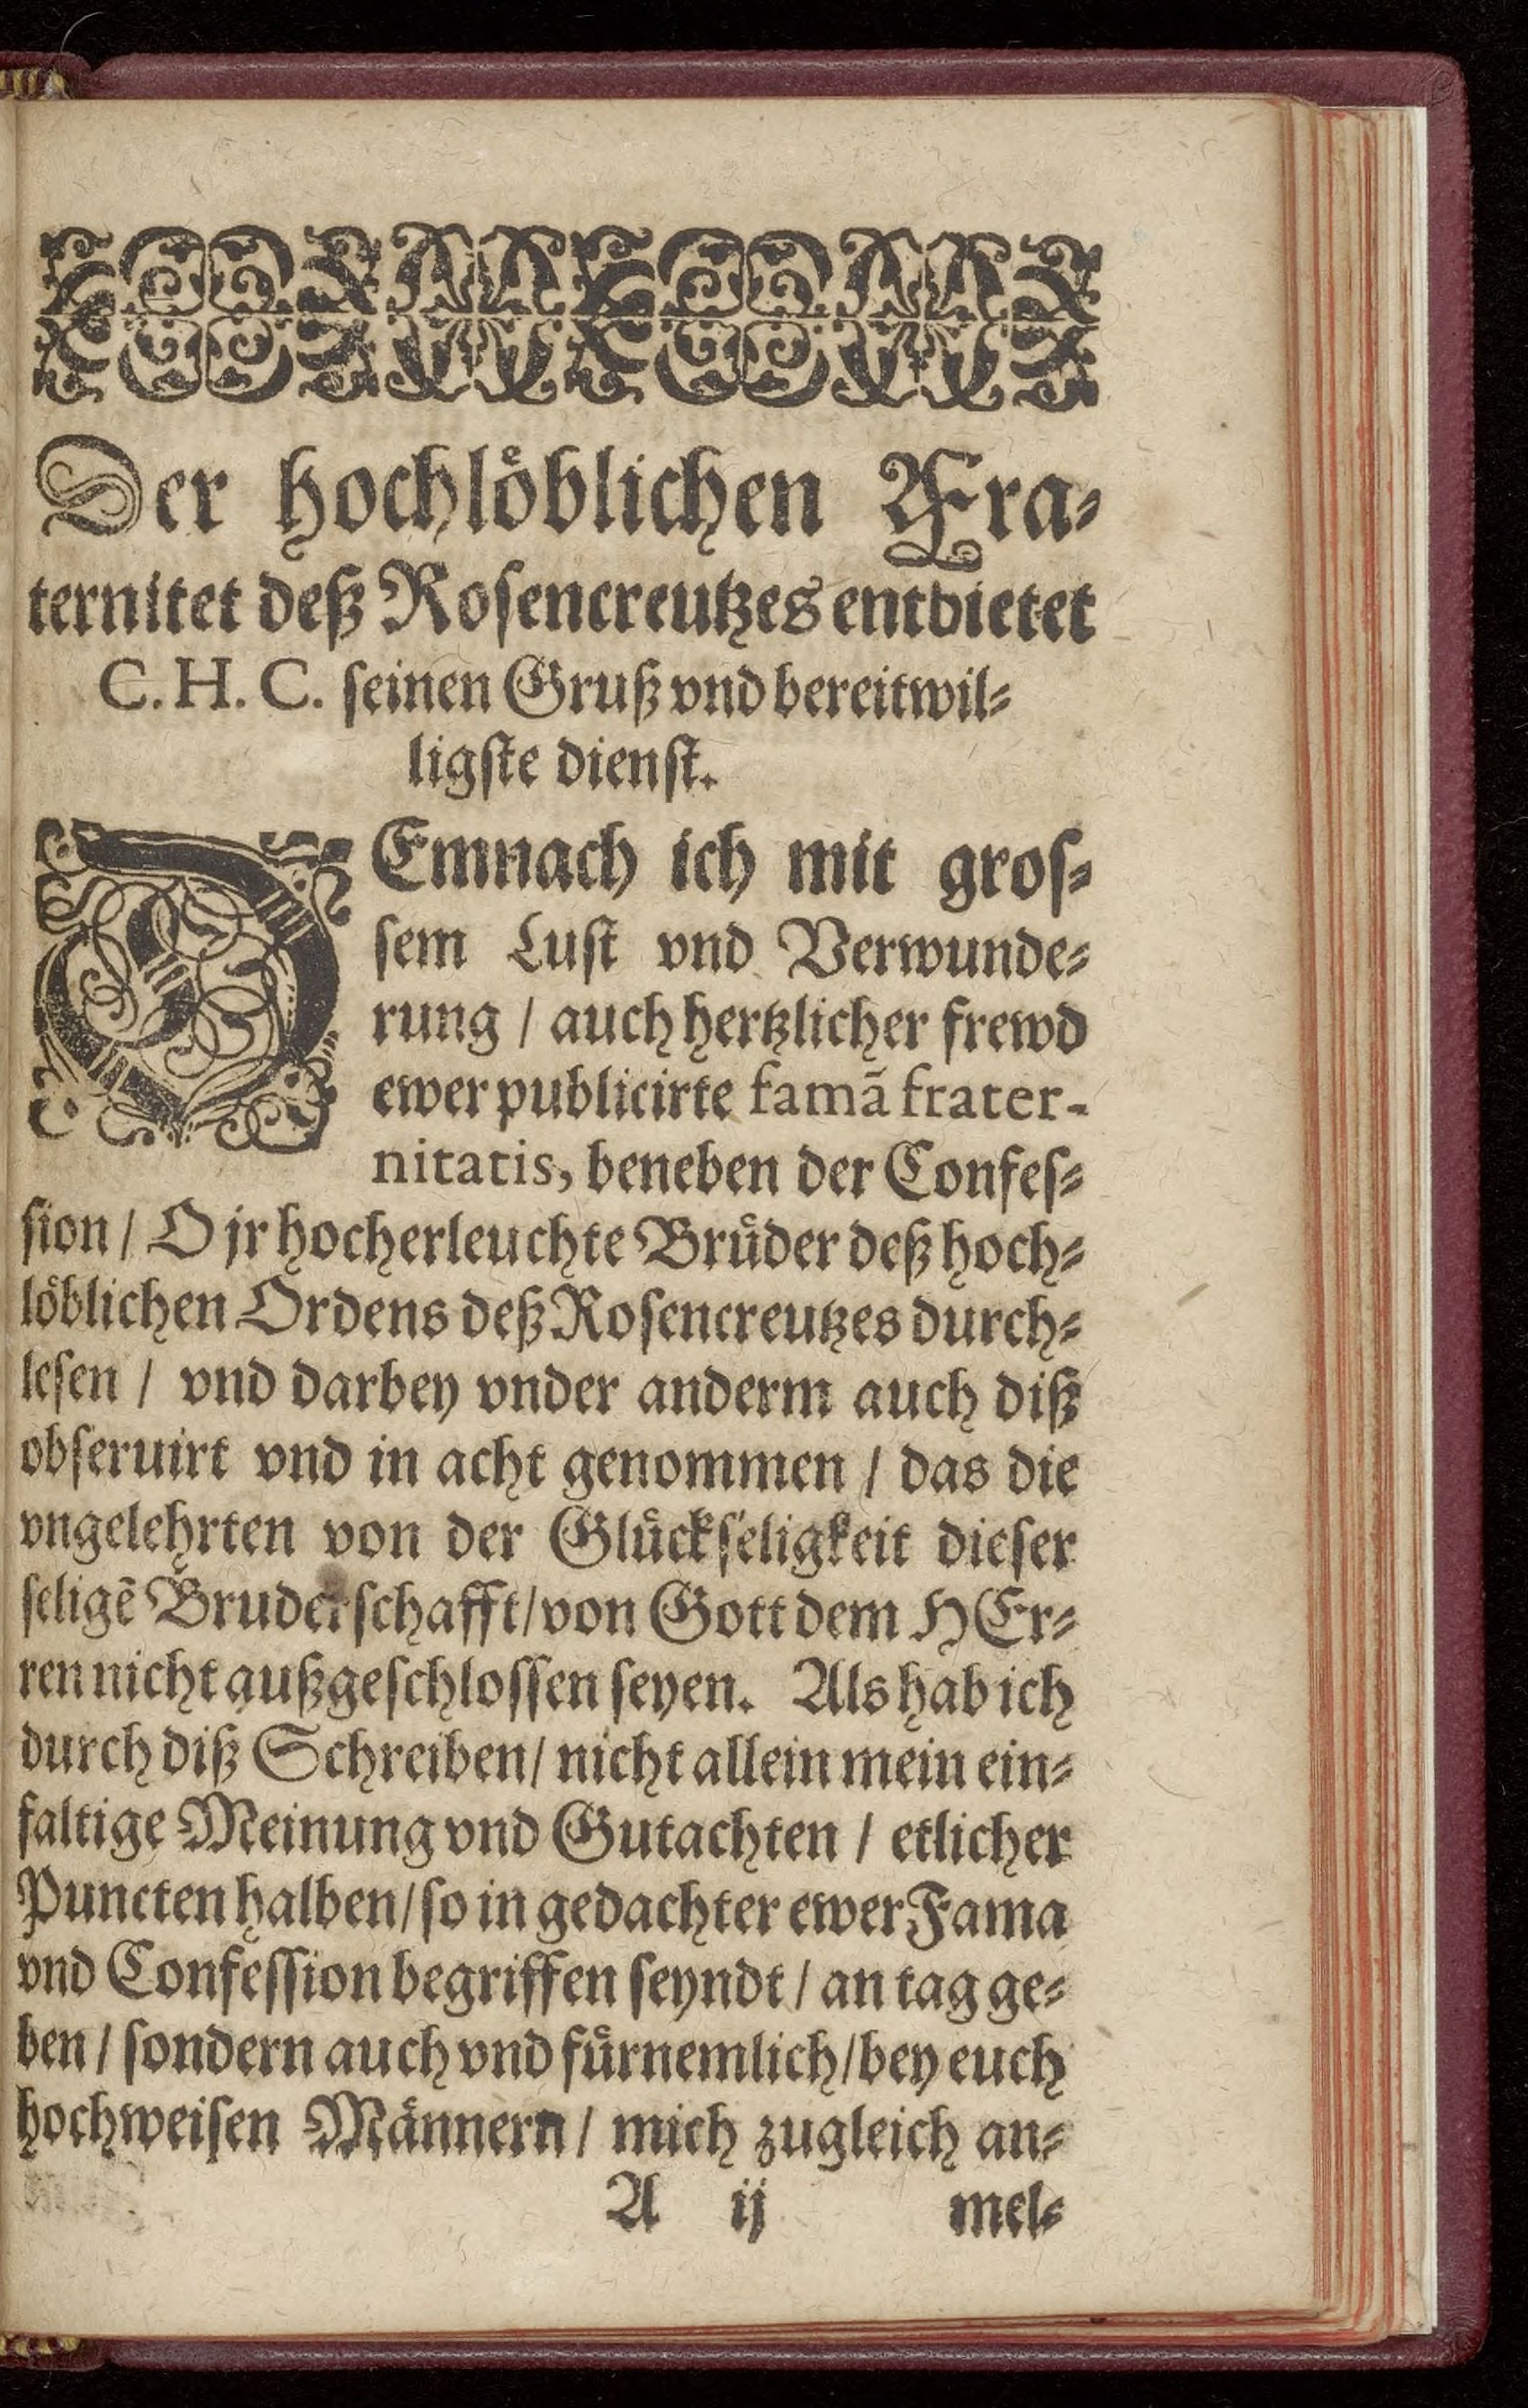 Der hochlöblichen Fra-
ternitet deß Rosencreutzes entbietet
C. H. C. seinen Gruß vnd bereitwil-
ligste dienst.
DEmnach ich mit gros-
sem Lust vnd Verwunde-
rung / auch hertzlicher frewd
ewer publicirte famã frater-
nitatis, beneben der Confes-
sion / O jr hocherleuchte Brüder deß hoch-
löblichen Ordens deß Rosencreutzes durch-
lesen / vnd darbey vnder anderm auch diß
obseruirt vnd in acht genommen / das die
vngelehrten von der Glückseligkeit dieser
seligẽ Bruderschafft / von Gott dem HEr-
ren nicht außgeschlossen seyen. Als hab ich
durch diß Schreiben / nicht allein mein ein-
faltige Meinung vnd Gutachten / etlicher
Puncten halben / so in gedachter ewer Fama
vnd Confession begriffen seyndt / an tag ge-
ben / sondern auch vnd fürnemlich / bey euch
hochweisen Männern / mich zugleich an-
A ij mel-